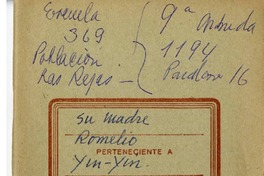 Escuela
369
Población
Las Rejas —
9ª Avenida
1194
Paradero 16
Su Madre
Romelio
PERTENECIENTE A
Yin-Yin.